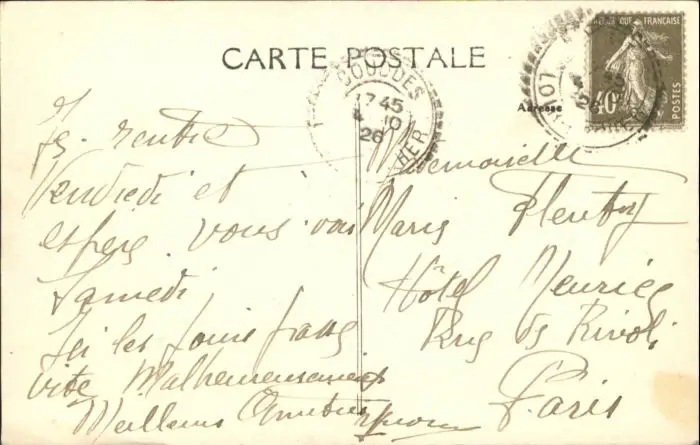 CARTE POSTALE
RÉPUBLIQUE FRANÇAISE
POSTES
40c
Adresse
COUDDES
7 45
4 10
26
CHER
26
Je rentre
Vendredi et
espère vous voir
Samedi
Ici les jours passent
vite Malheureusement
Meilleurs
Mademoiselle
Marie
Hôtel Meurice
Rue de Rivoli
Paris